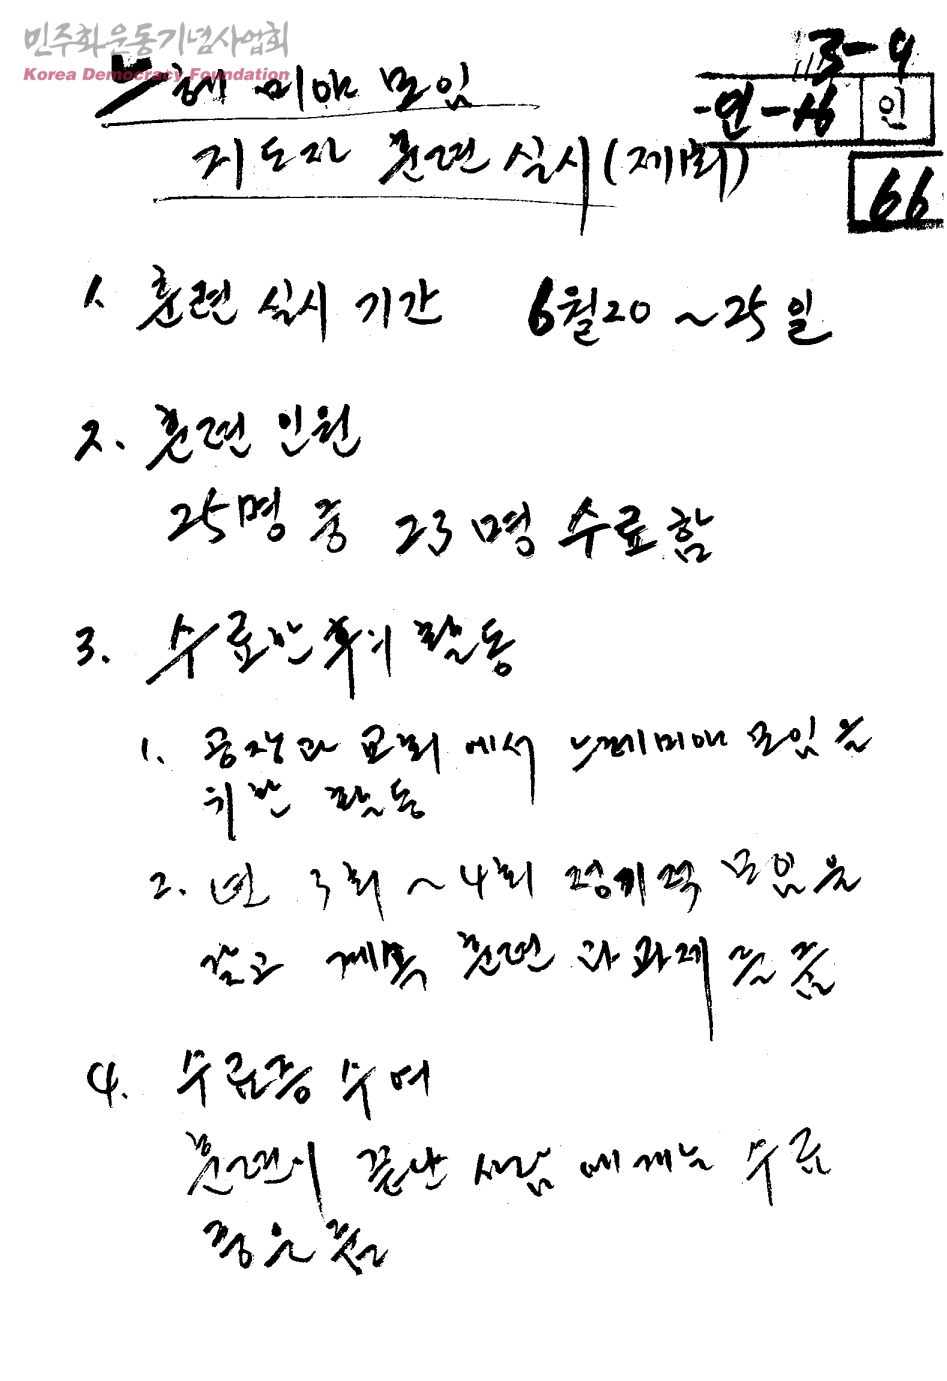 민주화운동기념사업회
Korea Democracy Foundation
3-9
느헤미야 모임
-연-16 인
지도자 훈련 실시 (제1회)
66
1. 훈련 실시 기간 6월20~25일
2. 훈련 인원
25명 중 23명 수료함
3. 수료한 후의 활동
1. 공장과 교회에서 느헤미야 모임을
위한 활동
2. 년 3회~4회 정기적 모임을
갖고 계속 훈련과 과제를 줌
4. 수료증 수여
훈련이 끝난 사람에게는 수료
증을 줌